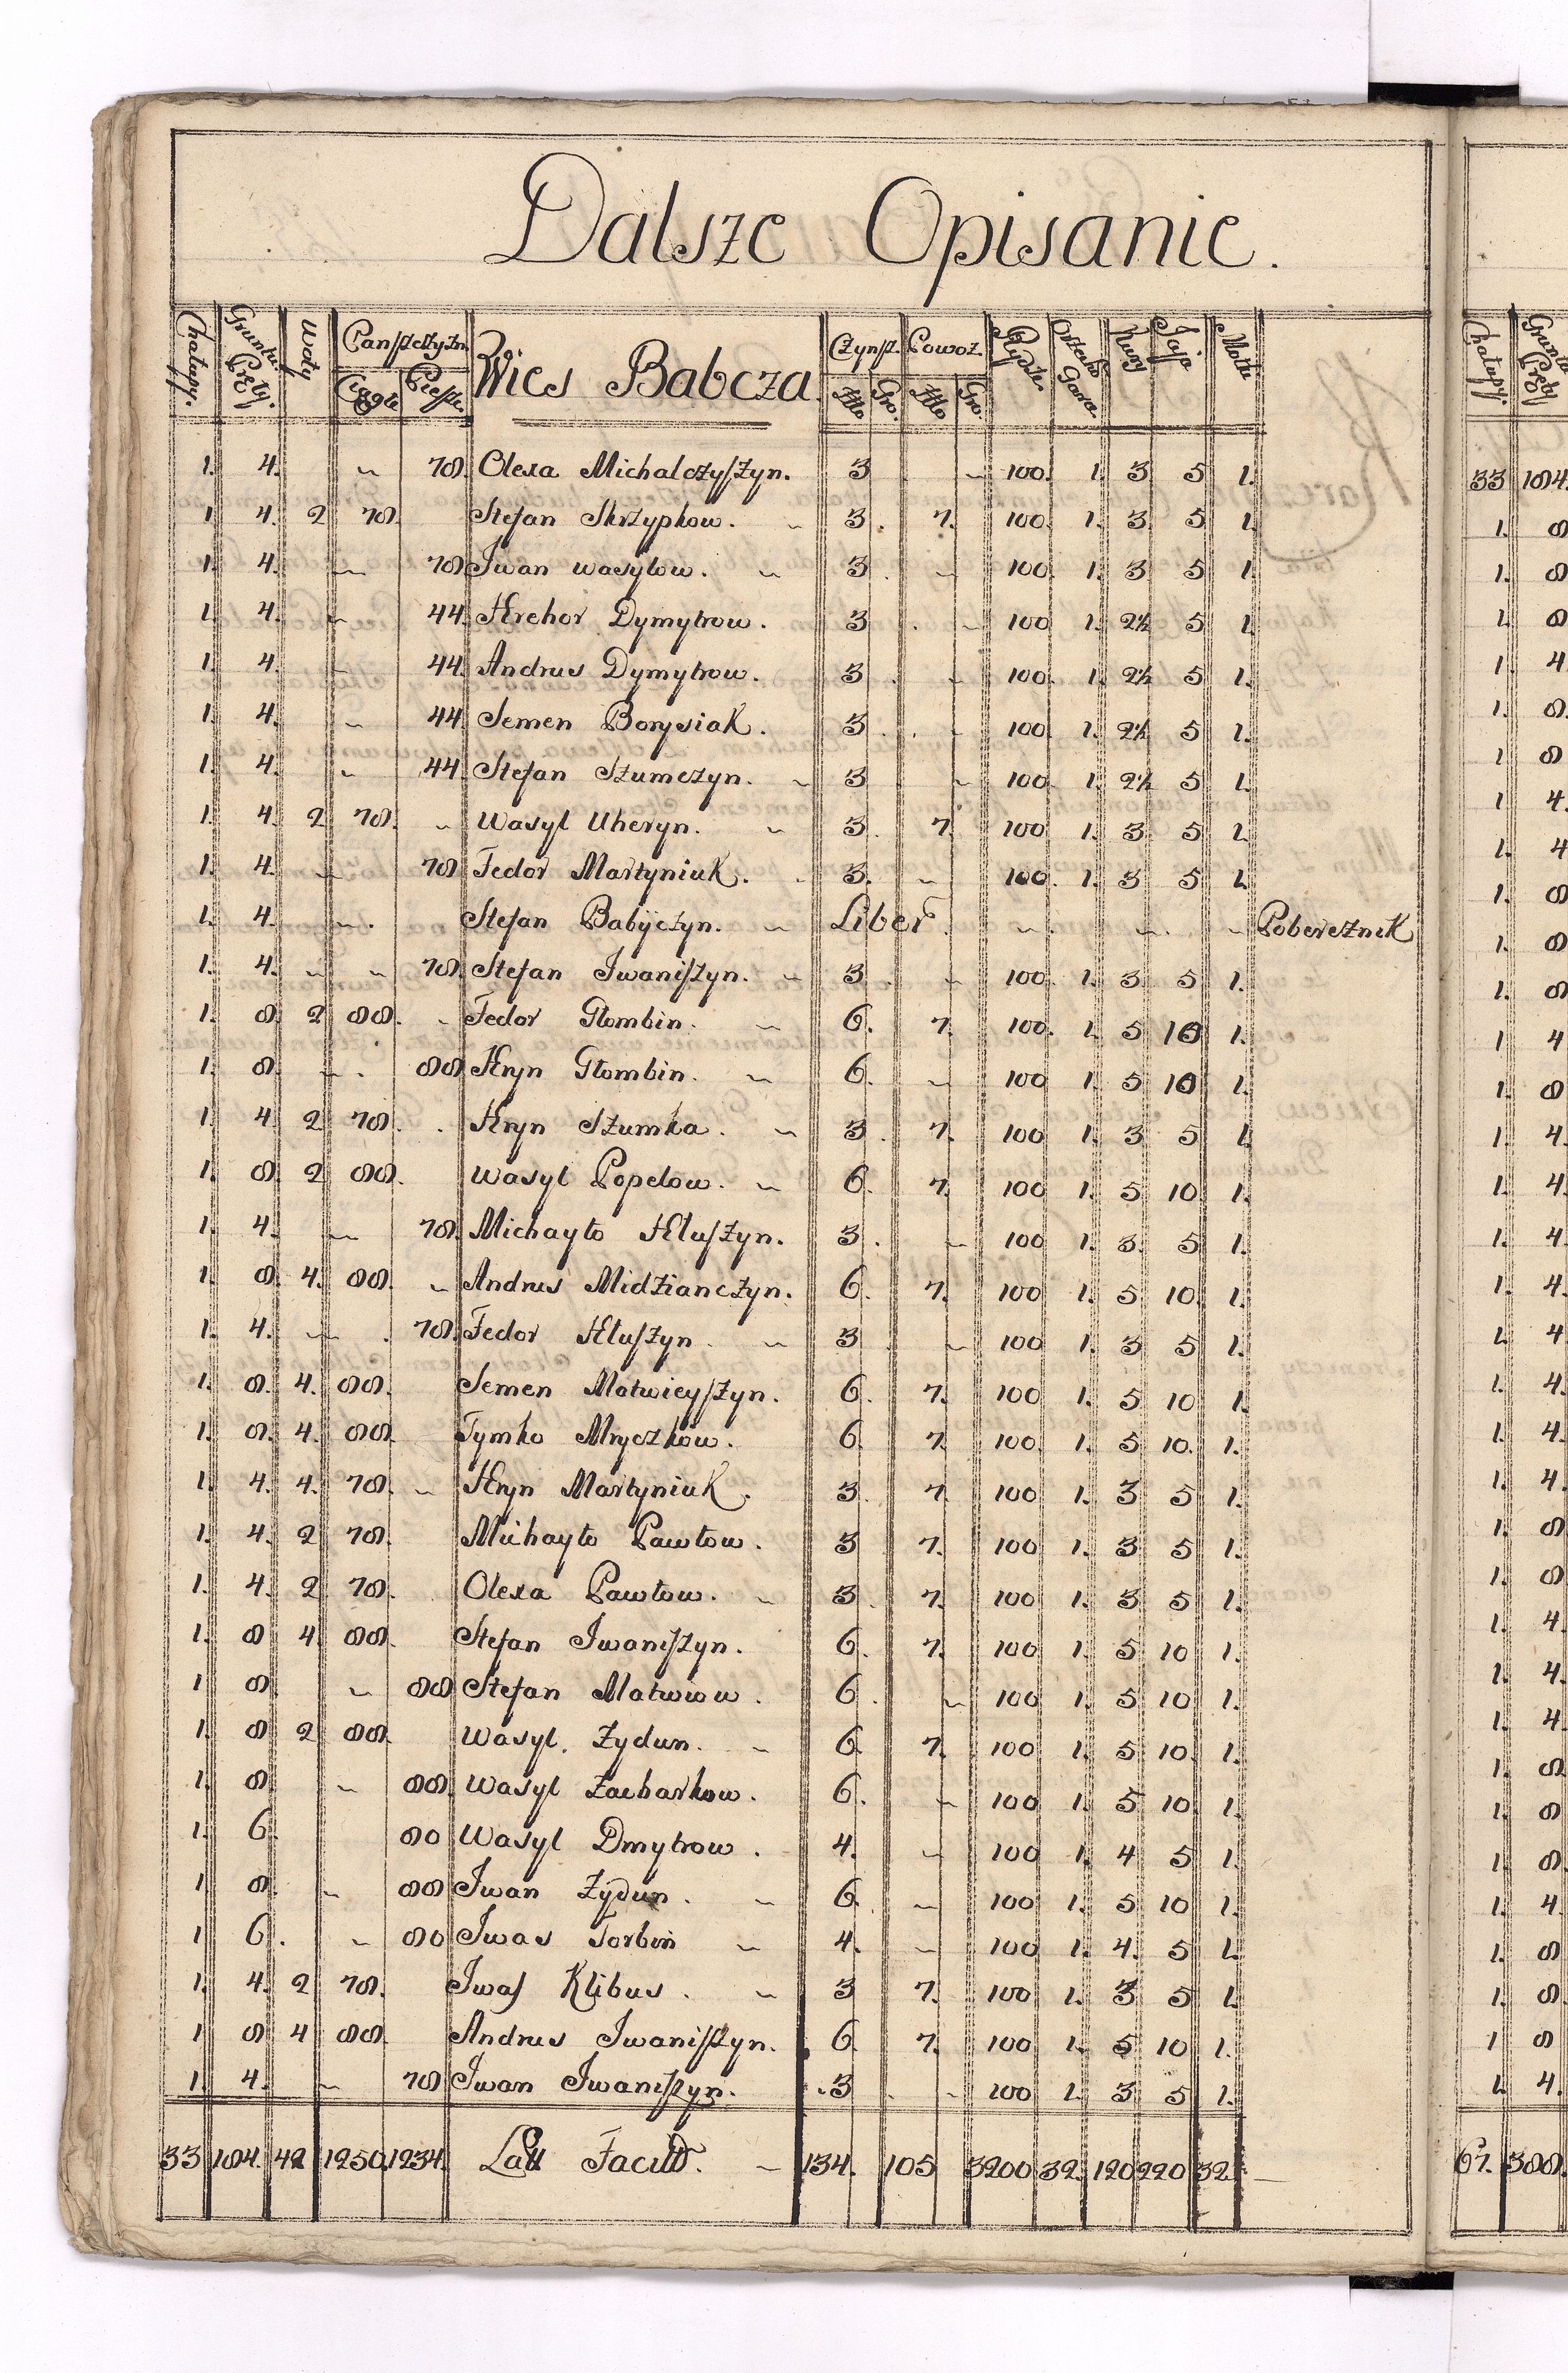 Dalsze Opisanie.
Chałupy. Gruntu Pręty. Woły Panszczyzn. Ciągłe Piesze. Wies Babcza. Czynsz. Złło Gro. Powoz. Złło Gro. Rydze. Garn. Kury Jaja Motu
1. 4. ~ 78. Olexa Michalczyszyn. 3 ~ 100. 1. 3 5 1.
1 4. 2 78. Stefan Skrzypkow. ~ 3. 7. 100. 1. 3 5 1.
1. 4. ~ 78 Iwan wasylow. ~ 3. ~ 100. 1. 3 5 1.
1. 4. ~ 44. Hrehor Dymytrow. 3 ~ 100 1. 2½ 5 1.
1. 4. ~ 44. Andrus Dymytrow. 3. ~ 100. 1. 2½ 5 1.
1. 4. ~ 44. Semen Borysiak. 3. ~ 100. 1. 2½ 5 1.
1. 4. ~ 44. Stefan Szumczyn. ~ 3 ~ 100. 1. 2½ 5 1.
1. 4. 2 78. ~ Wasyl Uheryn. ~ 3. 7. 100 1. 3. 5 1.
1. 4. ~ 78 Fedor Martyniuk. 3. ~ 100. 1. 3 5 1.
1. 4. ~. Stefan Babijczyn. ~ Liber. ~. ~. ~ Pobereznik
1. 4. ~ ~ 78. Stefan Iwaniszyn. ~ 3. ~ 100. 1. 3. 5 1.
1. 8. 2 88. ~ Fedor Głombin. ~ 6. 7. 100. 1. 5 10 1.
1. 8. ~. 88 Hryn Głombin. ~ 6. ~ 100 1. 5 10 1.
1. 4. 2 78. Hryn Szumka. ~ 3. 7. 100 1. 3 5 1.
1. 8. 2 88. Wasyl Popelow. ~ 6. 7. 100 1. 5 10. 1.
1 4. ~ 78. Michayło Hluszyn. 3. ~ 100 1. 3. 5 1.
1. 8. 4. 88. ~ Andrus Midzianczyn. 6. 7. 100 1. 5 10. 1.
1. 4. ~ . 78. Fedor Hluszyn. ~ 3 ~ 100 1. 3 5 1.
1. 8. 4. 88. Semen Matwieyszyn. 6. 7. 100 1. 5 10 1.
1. 8. 4. 88. Tymko Mryczkow. 6. 7. 100. 1. 5 10. 1.
1. 4. 4. 78. ~ Hryn Martyniuk. 3. 7. 100 1. 3 5 1.
1. 4. 2 78. Michayło Pawłow. 3 7. 100 1. 3 5 1.
1. 4. 2 78. Olexa Pawłow. ~ 3. 7. 100 1. 3 5 1.
1. 8 4 88. Stefan Iwaniszyn. 6. 7. 100 1. 5 10 1.
1 8 ~ 88 Stefan Matwiow. 6. ~ 100 1. 5 10 1.
1. 8 2 88. Wasyl. Zydun. ~ 6. 7. 100 1. 5 10. 1.
1. 8. ~ 88. Wasyl Zacharkow. 6. ~ 100 1. 5 10 1.
1. 6. 80 Wasyl Dmytrow. 4. ~ 100 1. 4 5 1.
1 8. ~ 88 Iwan Zydun. ~ 6. ~ 100 1. 5 10 1.
1 6. ~ 80 Iwas Torbin ~ 4. ~ 100 1. 4. 5 1.
1. 4. 2 78. Iwas Klibus. ~ 3 7. 100 1. 3 5 1.
1 8 4 88. Andrus Iwaniszyn. 6. 7. 100 1. 5 10 1.
1. 4. ~ 78 Iwan Iwaniszyn. 3. ~ 100 1. 3 5 1.
33 184. 42 1250. 1234. Facitt. ~ 134. 105 3200 32. 120 220 32.
Chałupy. Gruntu Pręty
33 184.
1. 8
1. 8
1. 8
1. 4
1. 8.
1 8
1 4.
1. 4
1. 8
1. 8
1. 8
1. 4
1. 8
1. 4.
1. 4.
1. 4.
1. 4
1. 4
1. 4.
1. 4.
1. 4
1. 8
1. 8
1. 4
1. 4.
1. 4.
1. 8.
1. 8
1. 8
1. 4
1. 8
1. 8
1 8
1. 4.
67. 388.